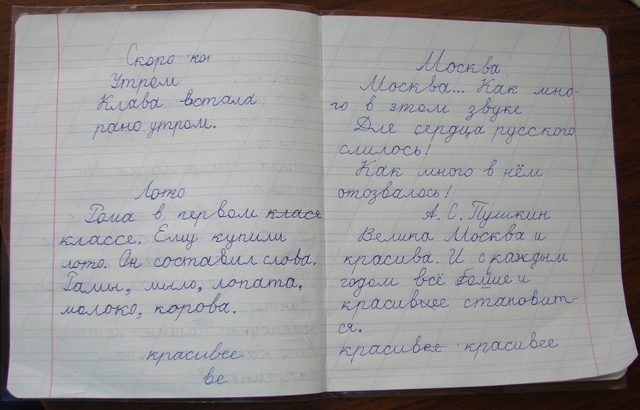 Скоро ко
Утром
Клава встала
рано утром.
Лото
Рома в первом класе
классе. Ему купили
лото. Он составил слова.
Рамы, мыло, лопата,
молоко, корова.
красивее
ве
Москва
Москва... Как мно-
го в этом звуке
Для сердца русского
слилось!
Как много в нём
отозвалось!
А. С. Пушкин
Велика Москва и
красива. И с каждым
годом всё больше и
красивее становит-
ся.
красивее красивее